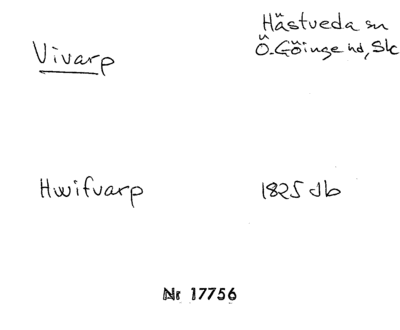 Hästveda sn
Vivarp
Ö. Göinge hd, Sk
Hwifvarp
1825 Jb
Nr 17756